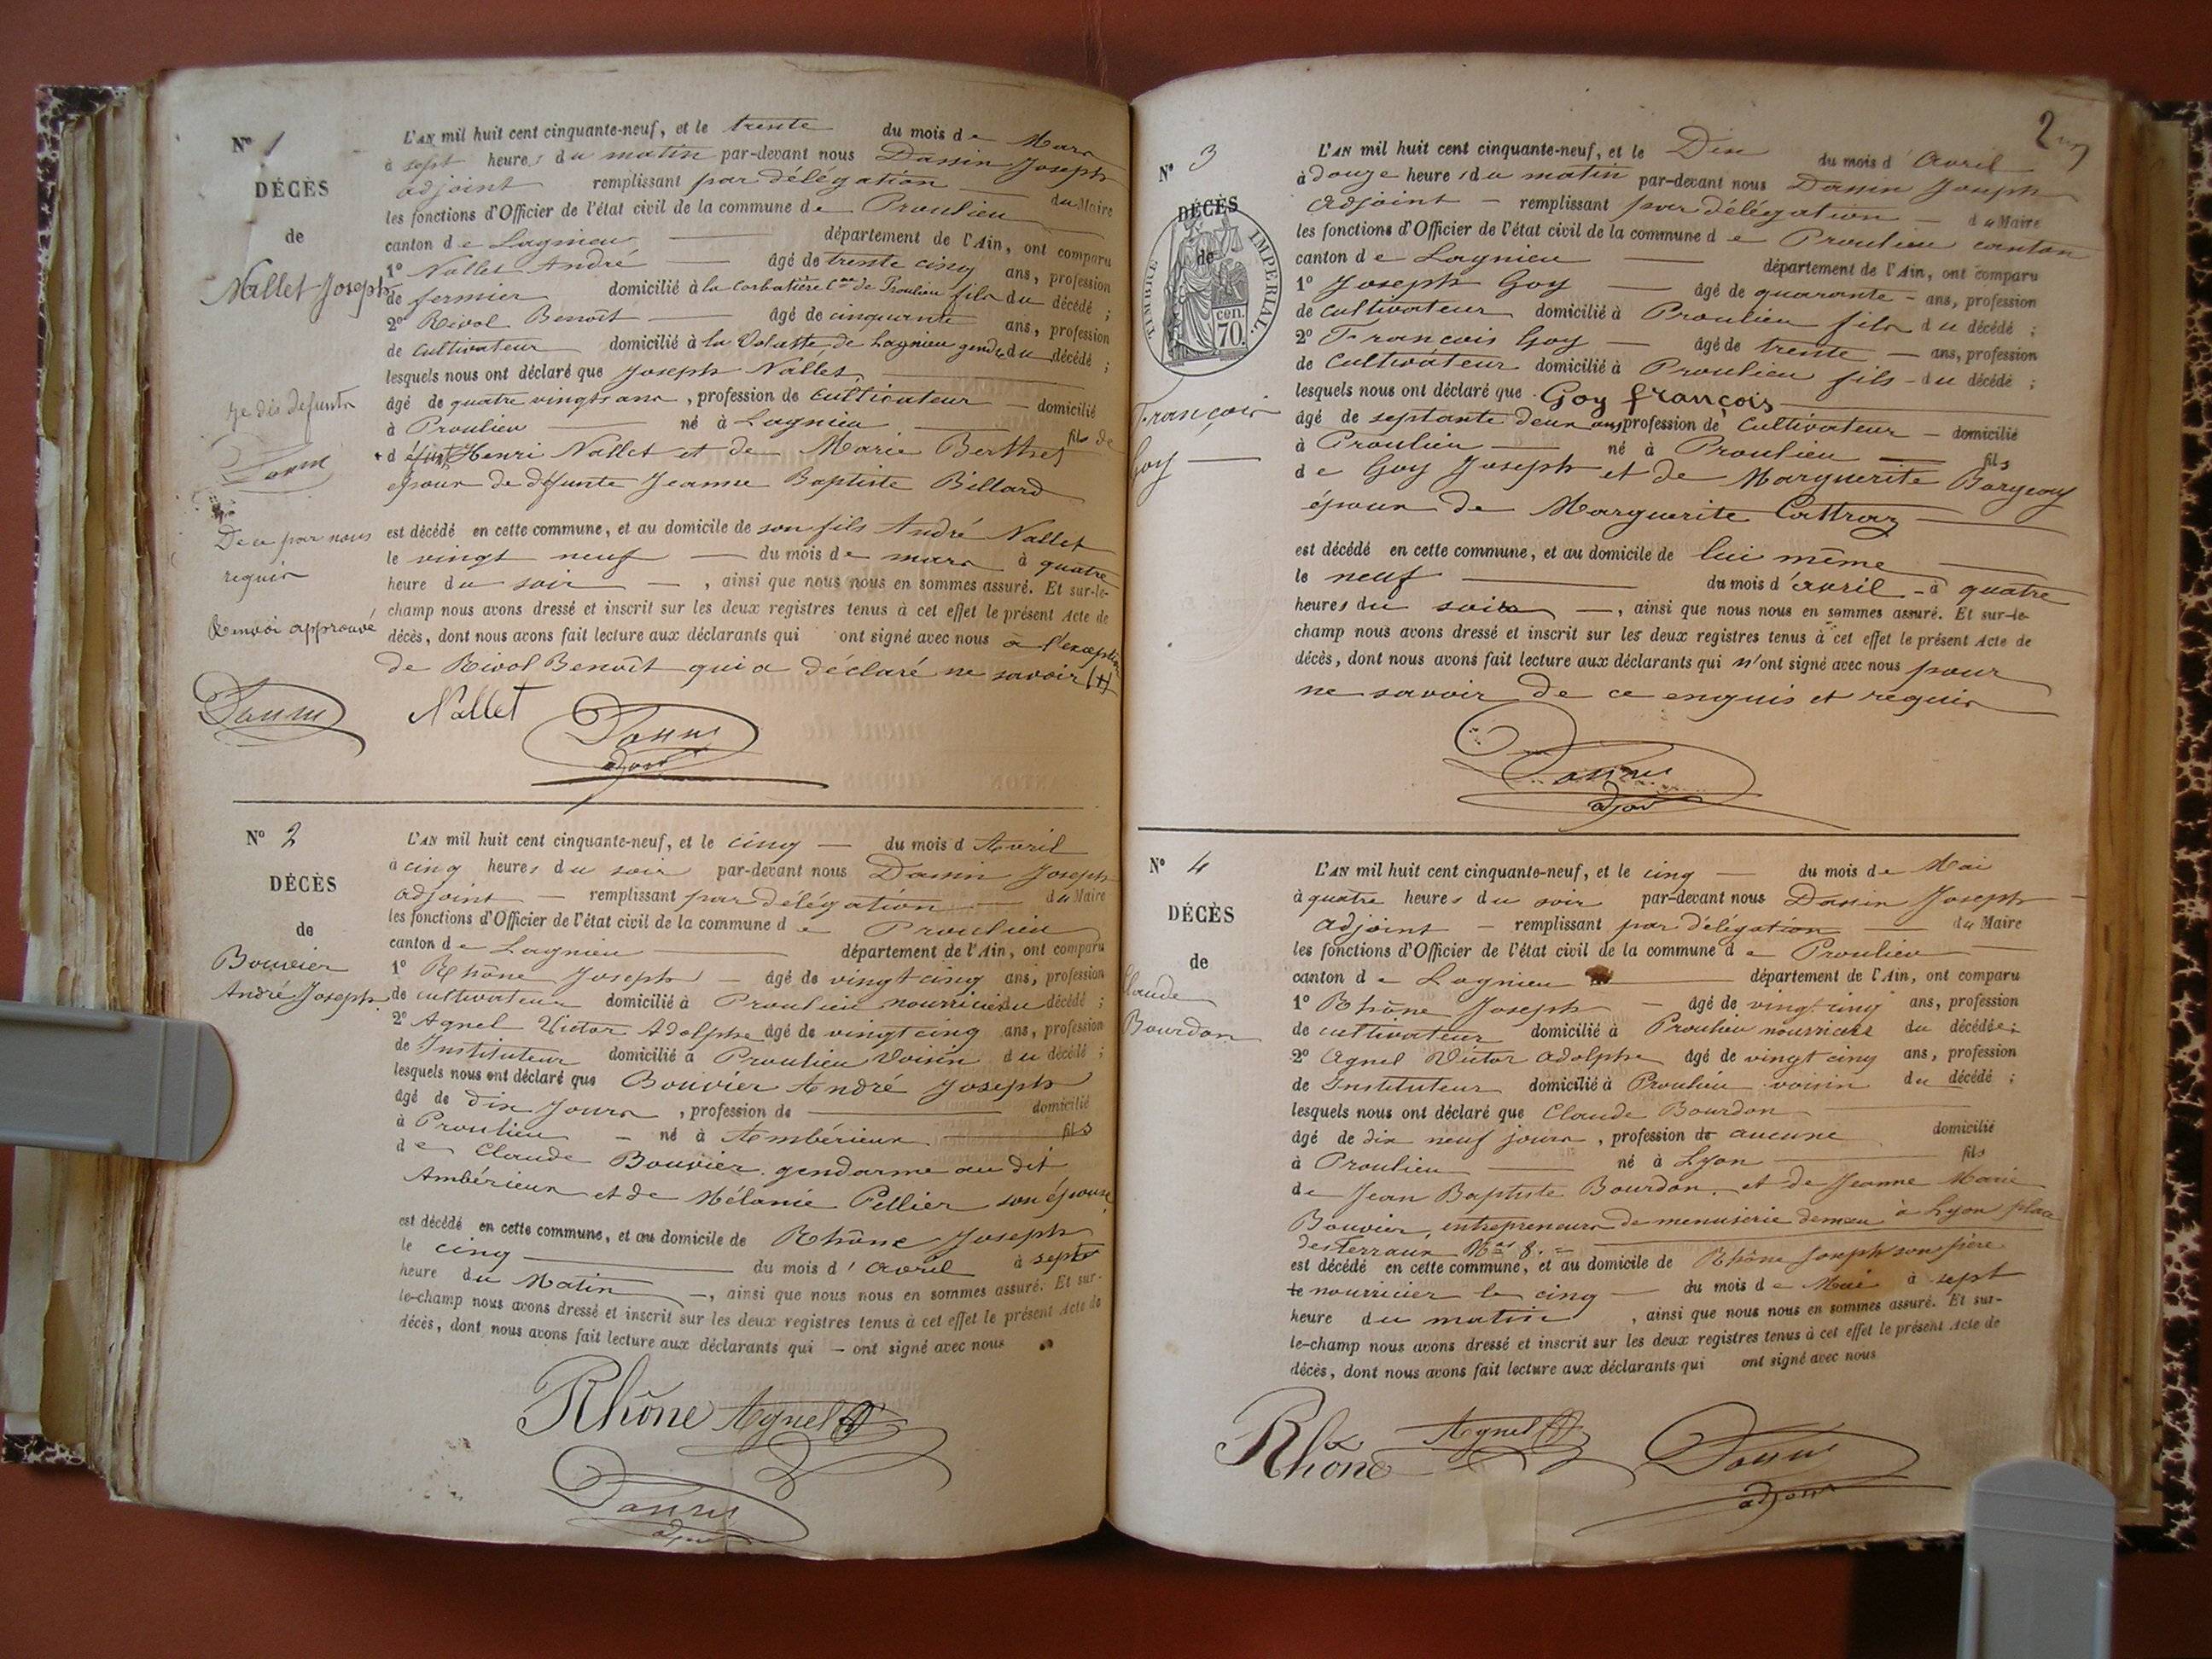 N° 1
DÉCÈS
de
Nallet Joseph
L'AN mil huit cent cinquante-neuf, et le trente du mois de Mars
à sept heures du matin par-devant nous Dassin Joseph
adjoint remplissant par délégation du Maire
les fonctions d'Officier de l'état civil de la commune de Proulieu
canton de Lagnieu département de l'Ain, ont comparu
1° Nallet André âgé de trente cinq ans, profession
de fermier domicilié à la Corbatière Cne de Proulieu fils du décédé ;
2° Rivol Benoît âgé de cinquante ans, profession
de cultivateur domicilié à la Volatte de Lagnieu gendre du décédé ;
lesquels nous ont déclaré que Joseph Nallet
âgé de quatre vingts ans, profession de cultivateur domicilié
à Proulieu né à Lagnieu fils de
Henri Nallet et de Marie Berthet
époux de défunte Jeanne Baptiste Billard
est décédé en cette commune, et au domicile de son fils André Nallet
le vingt neuf du mois de mars à quatre
heure du soir, ainsi que nous nous en sommes assuré. Et sur-le-
champ nous avons dressé et inscrit sur les deux registres tenus à cet effet le présent Acte de
décès, dont nous avons fait lecture aux déclarants qui ont signé avec nous à l'exception
de Rivol Benoît qui a déclaré ne savoir (+)
De ce par nous
requis
Renvoi approuvé
Nallet
N° 2
DÉCÈS
de
Bouvier
André Joseph
L'AN mil huit cent cinquante-neuf, et le cinq du mois d'Avril
à cinq heures du soir par-devant nous Dassin Joseph
adjoint remplissant par délégation du Maire
les fonctions d'Officier de l'état civil de la commune de Proulieu
canton de Lagnieu département de l'Ain, ont comparu
1° Rhône Joseph âgé de vingt cinq ans, profession
de cultivateur domicilié à Proulieu nourricier du décédé ;
2° Agnel Victor Adolphe âgé de vingt cinq ans, profession
de Instituteur domicilié à Proulieu voisin du décédé ;
lesquels nous ont déclaré que Bouvier André Joseph
âgé de dix jours, profession de domicilié
à Proulieu né à Ambérieux fils
de Claude Bouvier, gendarme au dit
Ambérieux et de Mélanie Pellier son épouse
est décédé en cette commune, et au domicile de Rhône Joseph
le cinq du mois d'avril à sept
heure du Matin, ainsi que nous nous en sommes assuré. Et sur-
le-champ nous avons dressé et inscrit sur les deux registres tenus à cet effet le présent Acte de
décès, dont nous avons fait lecture aux déclarants qui ont signé avec nous
Rhône Agnel
2
N° 3
DÉCÈS
de
TIMBRE IMPERIAL
70 cen.
François
Goy
L'AN mil huit cent cinquante-neuf, et le Dix du mois d'Avril
à douze heures du matin par-devant nous Dassin Joseph
adjoint remplissant par délégation du Maire
les fonctions d'Officier de l'état civil de la commune de Proulieu canton
canton de Lagnieu département de l'Ain, ont comparu
1° Joseph Goy âgé de quarante ans, profession
de cultivateur domicilié à Proulieu fils du décédé ;
2° François Goy âgé de trente ans, profession
de cultivateur domicilié à Proulieu fils du décédé ;
lesquels nous ont déclaré que Goy françois
âgé de septante deux ans profession de cultivateur domicilié
à Proulieu né à Proulieu fils
de Goy Joseph et de Marguerite
époux de Marguerite
est décédé en cette commune, et au domicile de lui même
le neuf du mois d'avril à quatre
heures du soir, ainsi que nous nous en sommes assuré. Et sur-le-
champ nous avons dressé et inscrit sur les deux registres tenus à cet effet le présent Acte de
décès, dont nous avons fait lecture aux déclarants qui n'ont signé avec nous pour
ne savoir de ce enquis et requis
N° 4
DÉCÈS
de
Claude
Bourdon
L'AN mil huit cent cinquante-neuf, et le cinq du mois de Mai
à quatre heures du soir par-devant nous Dassin Joseph
adjoint remplissant par délégation du Maire
les fonctions d'Officier de l'état civil de la commune de Proulieu
canton de Lagnieu département de l'Ain, ont comparu
1° Rhône Joseph âgé de vingt cinq ans, profession
de cultivateur domicilié à Proulieu nourricier du décédé ;
2° Agnel Victor Adolphe âgé de vingt cinq ans, profession
de Instituteur domicilié à Proulieu voisin du décédé ;
lesquels nous ont déclaré que Claude Bourdon
âgé de dix neuf jours, profession de aucune domicilié
à Proulieu né à Lyon fils
de Jean Baptiste Bourdon, et de Jeanne Marie
Bouvier, entrepreneurs de menuiserie à Lyon place
des Terraux
est décédé en cette commune, et au domicile de Rhône Joseph son père
nourricier le cinq du mois de Mai à sept
heure du matin, ainsi que nous nous en sommes assuré. Et sur-
le-champ nous avons dressé et inscrit sur les deux registres tenus à cet effet le présent Acte de
décès, dont nous avons fait lecture aux déclarants qui ont signé avec nous
Rhône Agnel